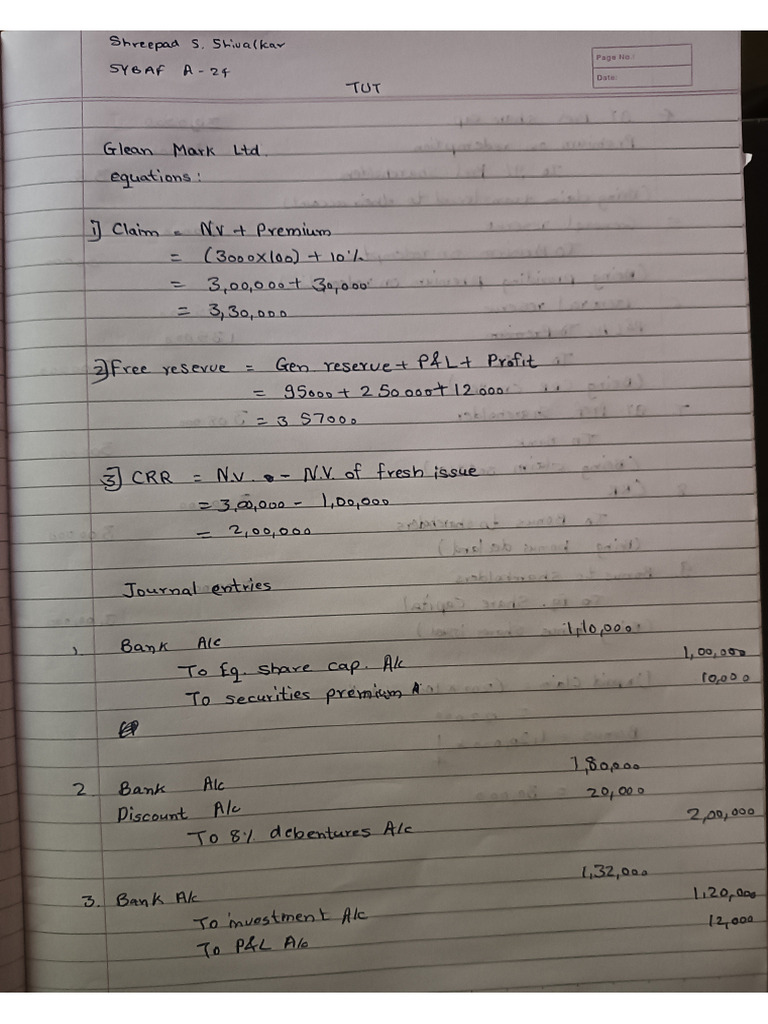 Shreepad S. Shivalkar
SYBAF A-24
Page No.:
Date:
TUT
Glean Mark Ltd.
equations:
1] Claim = NV + Premium
= (3000x100) + 10%
= 3,00,000 + 30,000
= 3,30,000
2] Free reserve = Gen reserve + P&L + Profit
= 95000 + 250000 + 12000
= 357000
3] CRR = N.V. - N.V. of fresh issue
= 3,00,000 - 1,00,000
= 2,00,000
Journal entries
1. Bank A/c 1,10,000
To Eq. share cap. A/c 1,00,000
To securities premium A 10,000
2. Bank A/c 1,80,000
Discount A/c 20,000
To 8% debentures A/c 2,00,000
3. Bank A/c 1,32,000
To investment A/c 1,20,000
To P&L A/c 12,000